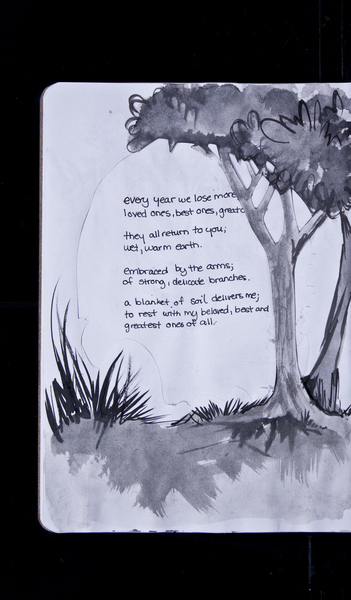 every year we lose more
loved ones, best ones,
they all return to you;
wet, warm earth.
embraced by the arms;
of strong, delicate branches.
a blanket of soil delivers me;
to rest with my beloved, best and
greatest ones of all.